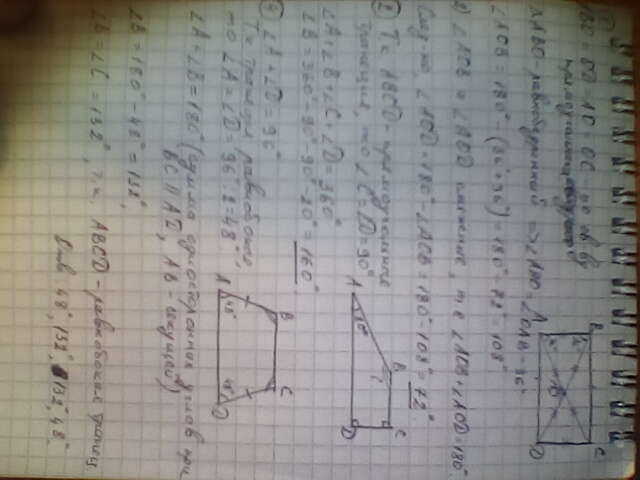 ① BO = OD = AO = OC, по св-ву
прямоугольника
△ABO - равнобедренный => ∠ABO = ∠OAB = 36°
∠AOB = 180° - (36°+36°) = 180° - 72° = 108°
2) ∠AOB и ∠AOD смежные, т.е ∠AOB + ∠AOD = 180°.
След-но, ∠AOD = 180° - ∠AOB = 180° - 108° = 72°
B
C
A
D
O
② Т.к ABCD - прямоугольная
трапеция, то ∠C = ∠D = 90°
∠A + ∠B + ∠C + ∠D = 360°
∠B = 360° - 90° - 90° - 20° = 160°
A
20°
B
C
D
∠A + ∠D = 96°
Т.к трапеция равнобокая,
то ∠A = ∠D = 96 : 2 = 48°
∠A + ∠B = 180° (сумма односторонних углов при
BC || AD, AB - секущей)
∠B = 180° - 48° = 132°,
∠B = ∠C = 132°, т.к. ABCD - равнобокая трапец
Отв: 48°, 132°, 132°, 48°
A
48°
B
C
48°
D